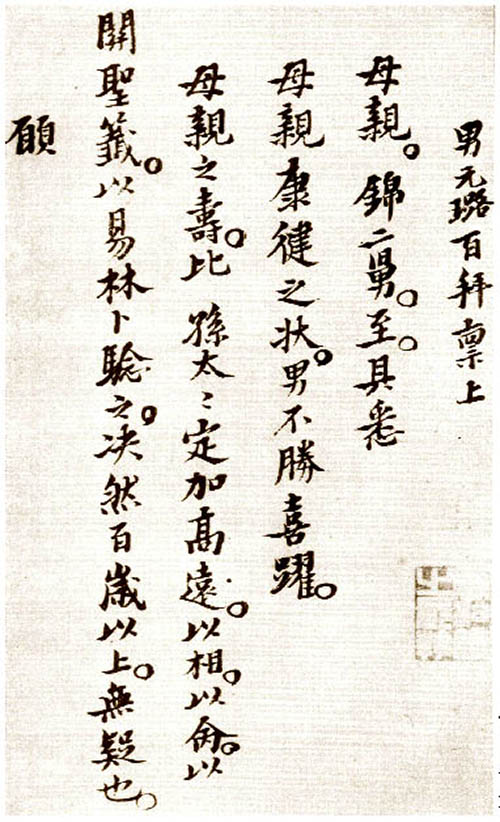 男元璐百拜稟上
母親。錦二舅。至。具悉
母親康健之状。男不勝喜躍。
母親之壽。比 孫太〻定加髙遠。以相。以命。以
関聖籤。以易林卜驗之。决然百歲以上。無疑也。
願